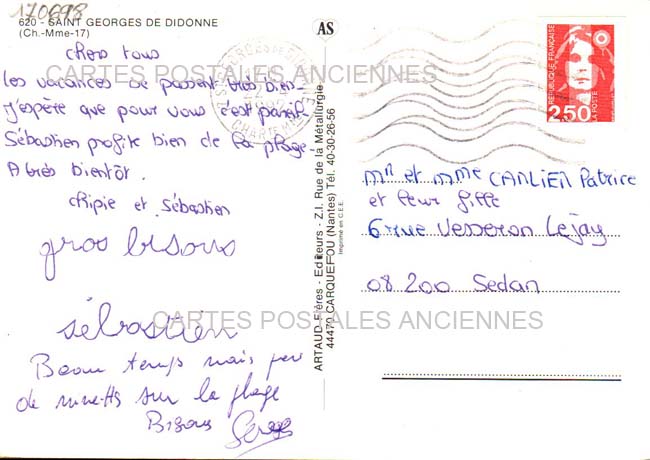 170698
620 - SAINT GEORGES DE DIDONNE
(Ch.-Mme-17)
chers tous
les vacances se passent très bien-
j'espère que pour vous c'est pareil-
Sébastien profite bien de la plage
A très bientôt.
chipie et Sébastien
gros bisous
sébastien
Beau temps mais peu
de minetts sur la plage
Bisous Serge
AS
ARTAUD Frères - Editeurs - Z.I. Rue de la Métallurgie
44470 CARQUEFOU (Nantes) Tél. 40-30-26-56
Imprimé en C.E.E.
RÉPUBLIQUE FRANÇAISE
2,50
LA POSTE
Mr et Mme CANLIEN Patrice
et leur fille
6 rue Vesseron Lejay
08200 Sedan
CARTES POSTALES ANCIENNES
CARTES POSTALES ANCIENNES